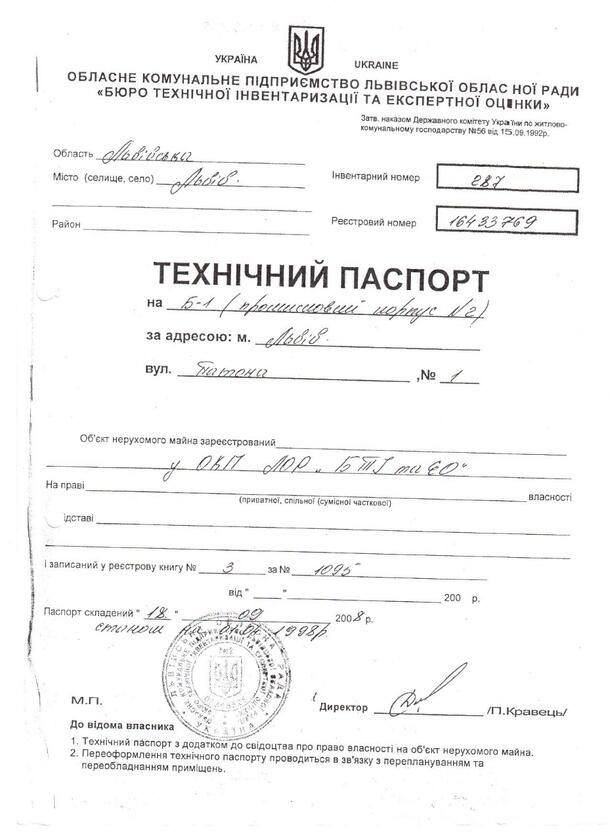 УКРАЇНА UKRAINE
ОБЛАСНЕ КОМУНАЛЬНЕ ПІДПРИЄМСТВО ЛЬВІВСЬКОЇ ОБЛАС НОЇ РАДИ
«БЮРО ТЕХНІЧНОЇ ІНВЕНТАРИЗАЦІЇ ТА ЕКСПЕРТНОЇ ОЦІНКИ»
Затв. наказом Державного комітету України по житлово-
комунальному господарству №56 від 15.09.1992р.
Область Львівська
Місто (селище, село) Львів.
Інвентарний номер 287
Район
Реєстровий номер 16433769
ТЕХНІЧНИЙ ПАСПОРТ
на Б-1 (промисловий корпус №2)
за адресою: м. Львів.
вул. Патона ,№ 1
Об'єкт нерухомого майна зареєстрований
у ОКП ЛОР „БТІ та ЕО"
На праві власності
(приватної, спільної (сумісної часткової)
ідставі
і записаний у реєстрову книгу № 3 за № 1095
від " " 200 р.
Паспорт складений " 18 " 09 2008р.
станом на 01.01.1998р
М.П.
Директор /П.Кравець/
До відома власника
1. Технічний паспорт з додатком до свідоцтва про право власності на об'єкт нерухомого майна.
2. Переоформлення технічного паспорту проводиться в зв'язку з переплануванням та
переобладнанням приміщень.